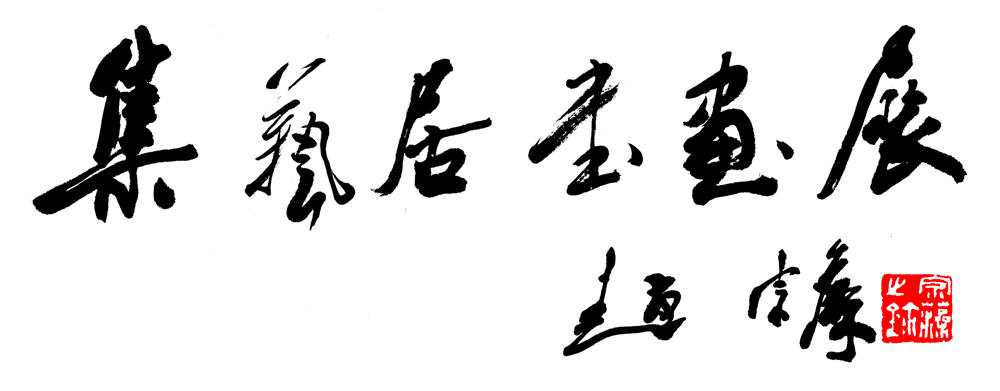 集藝居書畫展
趙宗藻
宗藻之鉨